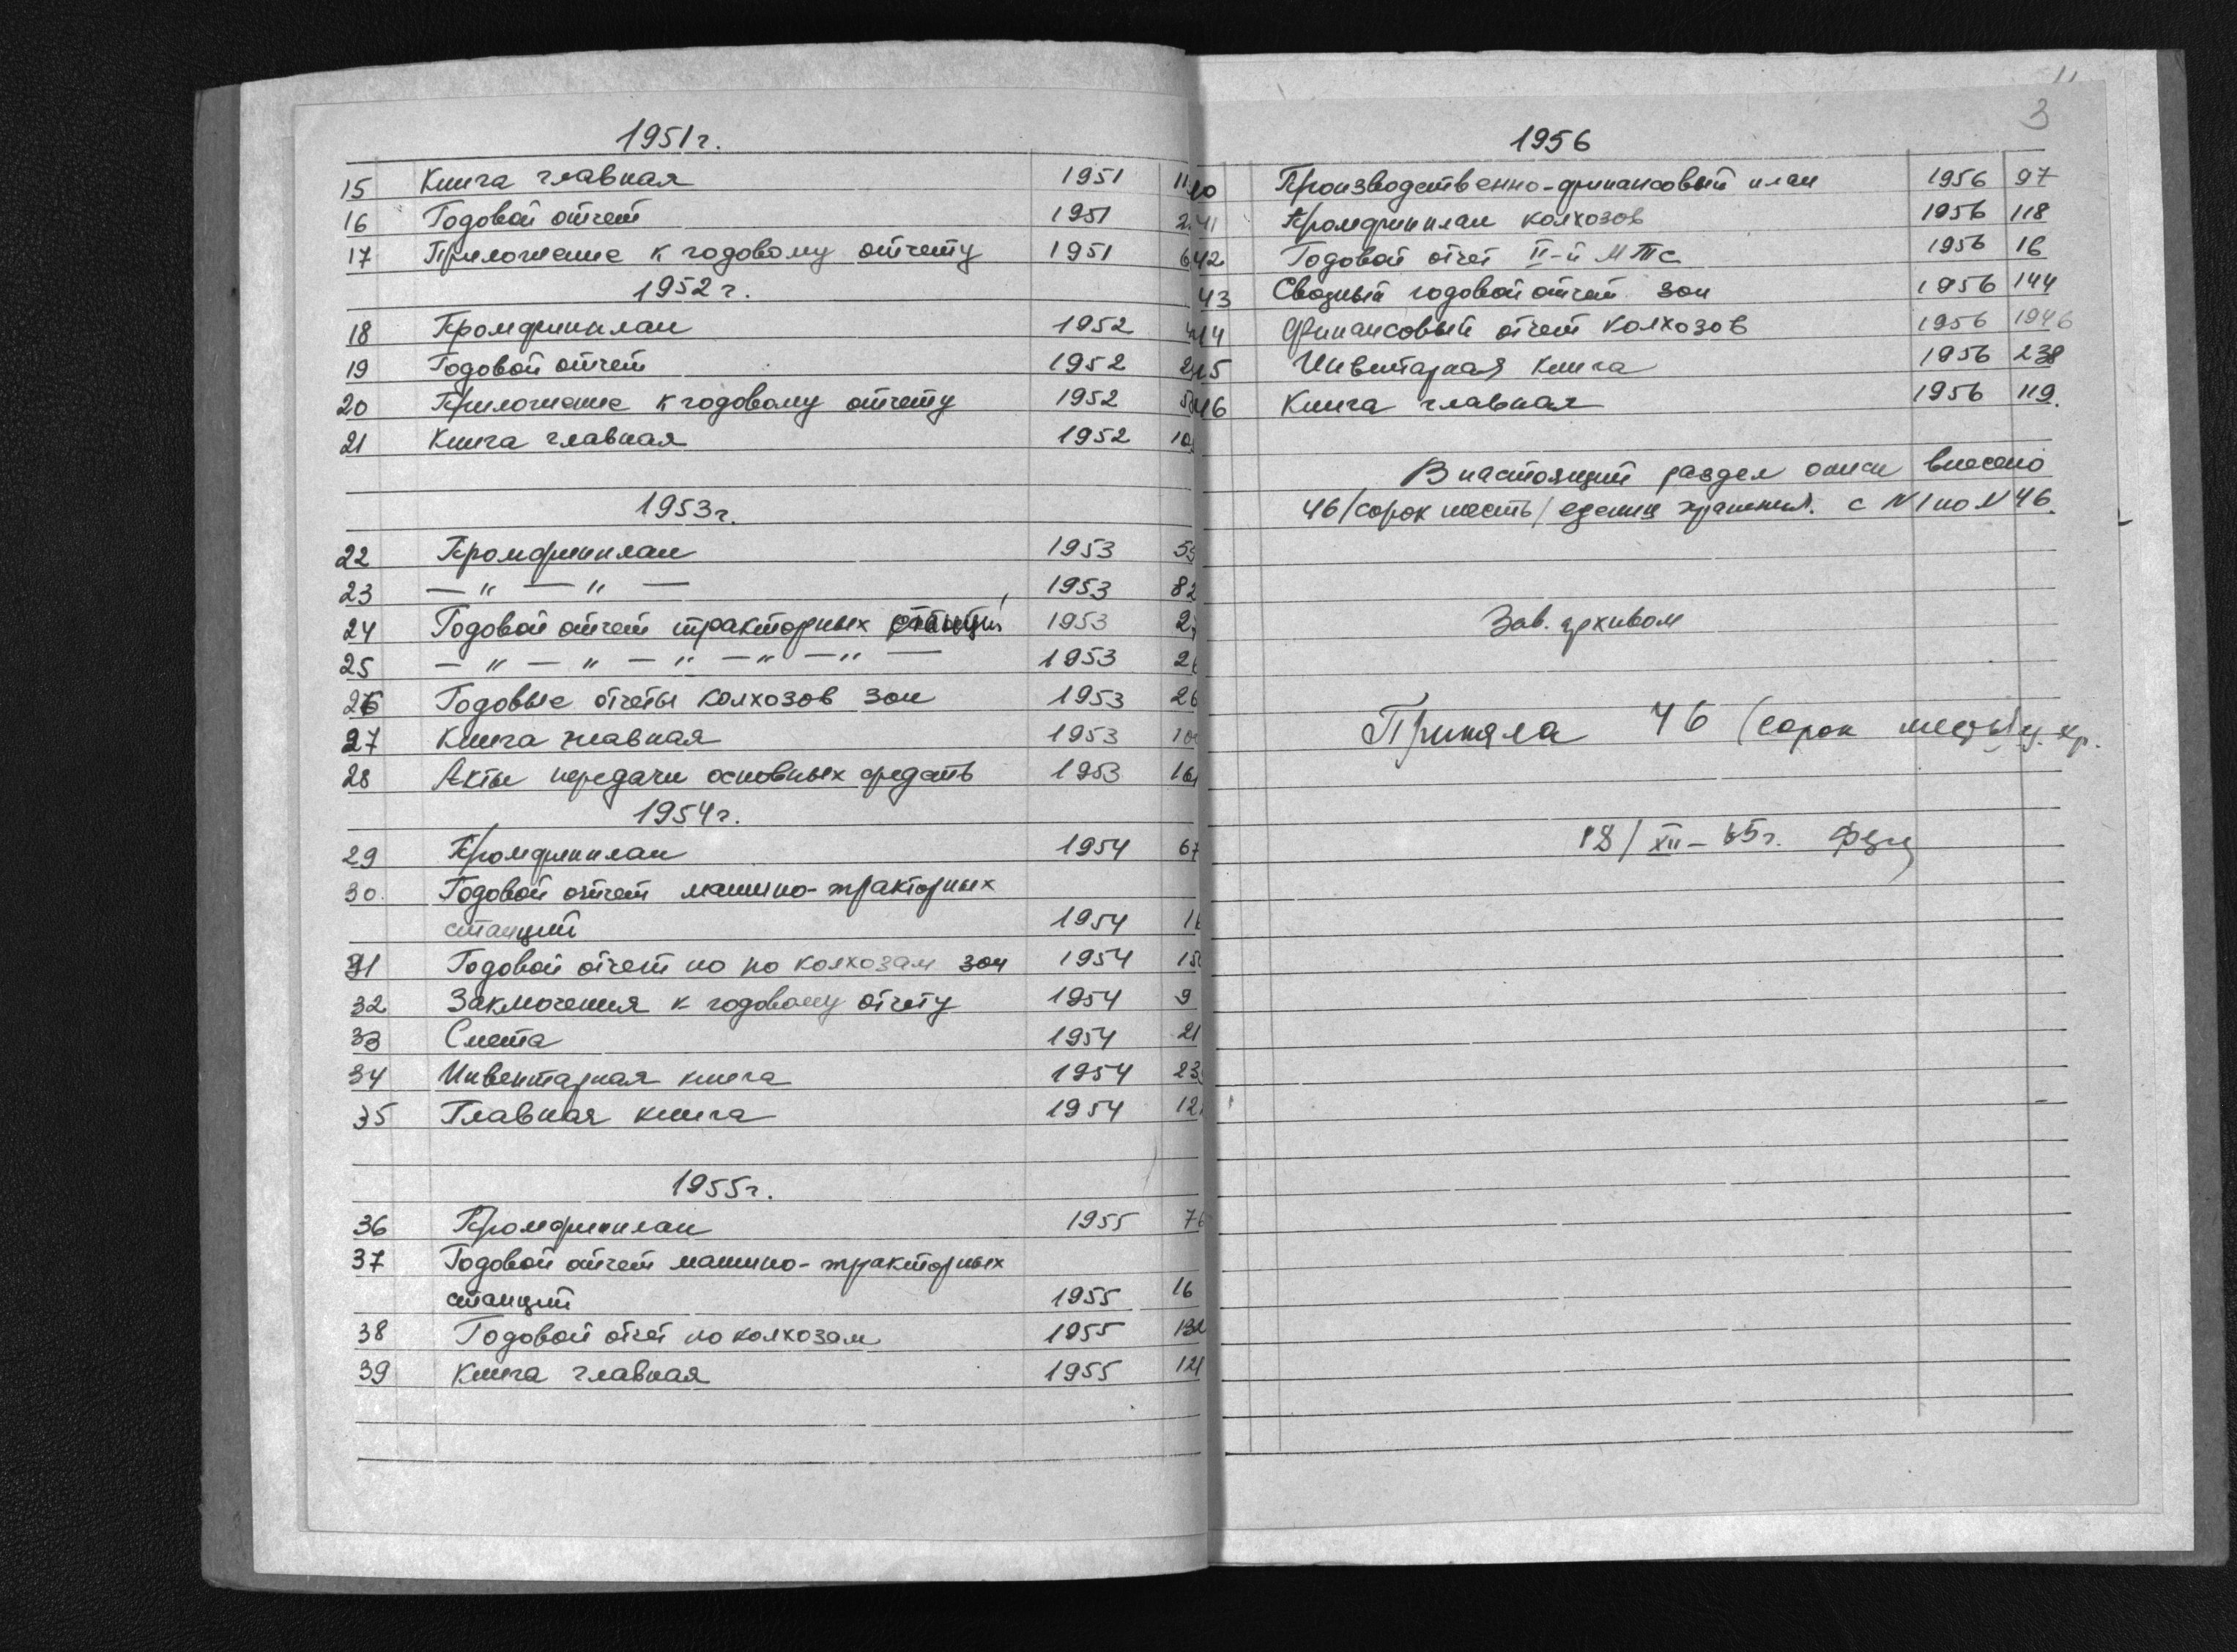 1951г.
15 Книга главная 1951
16 Годовой отчет 1951
17 Приложение к годовому отчету 1951
1952г.
18 Промфинплан 1952
19 Годовой отчет 1952
20 Приложение к годовому отчету 1952
21 Книга главная 1952
1953г.
22 Промфинплан 1953
23 — " — " — 1953 82
24 Годовой отчет тракторных станций 1953
25 — " — " — " — " — " — 1953
26 Годовые отчеты колхозов зон 1953
27 Книга главная 1953
28 Акты передачи основных средств 1953
1954г.
29 Промфинплан 1954 67
30. Годовой отчет машино-тракторных
станций 1954
31 Годовой отчет по по колхозам зон 1954
32 Заключения к годовому отчету 1954 9
33 Смета 1954 21
34 Инвентарная книга 1954
35 Главная книга 1954
1955г.
36 Промфинплан 1955
37 Годовой отчет машино-тракторных
станций 1955 16
38 Годовой отчет по колхозам 1955
39 Книга главная 1955 121
11
3
1956
40 Производственно-финансовый план 1956 97
41 Промфинплан колхозов 1956 118
42 Годовой отчет II-й МТС 1956 16
43 Сводный годовой отчет зон 1956 144
44 Финансовый отчет колхозов 1956 1946
45 Инвентарная книга 1956 238
46 Книга главная 1956 119.
В настоящий раздел описи внесено
46 /сорок шесть/ единиц хранения. с N 1 по N 46.
Зав. архивом
Приняла 46 (сорок шесть) ед. хр.
18/XII-65г.